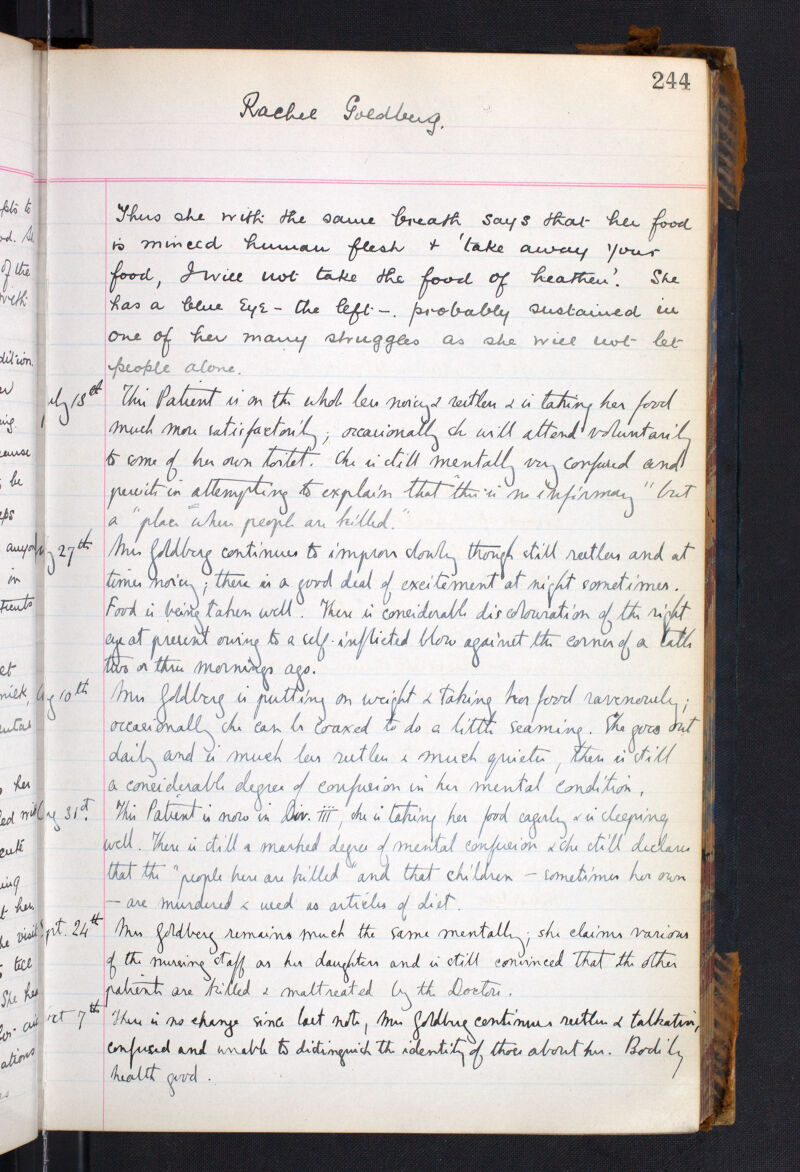 244
Rachel Goldberg.
Thus she with the same breath says that her food
is minced human flesh & 'take away your
food, I will not take the food of heathen'. She
has a blue Eye - the left -. probably sustained in
one of her many struggles as she will not let
people alone.
July 13th This Patient is on the whole less noisy & restless & is taking her food
much more satisfactorily; occasionally she will attend voluntarily
to some of her own toilet. She is still mentally very confused and
persists in attempting to explain that "this is no infirmary" but
a "place" where people are killed."
27th Mrs Goldberg continues to improve slowly though still restless and at
times noisy; there is a good deal of excitement at night sometimes.
Food is being taken well. There is considerable discolouration of the right
eye at present owing to a self-inflicted blow against the corner of a table
two or three mornings ago.
Aug 10th Mrs Goldberg is putting on weight & taking her food ravenously;
occasionally she can be coaxed to do a little seaming. She goes out
daily and is much less restless & much quieter, there is still
a considerable degree of confusion in her mental condition.
Aug 31st. This Patient is now in Div. III, she is taking her food eagerly & is sleeping
well. There is still a marked degree of mental confusion & she still declares
that the "people here are killed" and that children - sometimes her own
- are murdered & used as articles of diet.
Sept. 24th Mrs Goldberg remains much the same mentally; she claims various
of the nursing staff as her daughters and is still convinced that the other
patients are killed & maltreated by the Doctors.
Oct 7th There is no change since last note, Mrs Goldberg continues restless & talkative,
confused and unable to distinguish the identity of those about her. Bodily
health good.